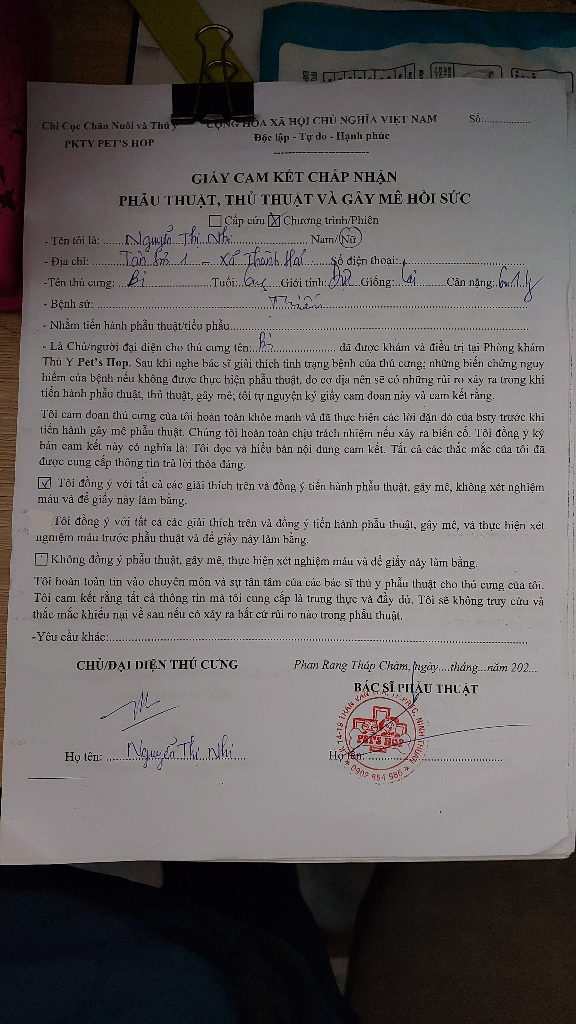 Chi Cục Chăn Nuôi và Thú y
CỘNG HÒA XÃ HỘI CHỦ NGHĨA VIỆT NAM
Số:..............
PKTY PET'S HOP
Độc lập - Tự do - Hạnh phúc
GIẤY CAM KẾT CHẤP NHẬN
PHẪU THUẬT, THỦ THUẬT VÀ GÂY MÊ HỒI SỨC
Cấp cứu Chương trình/Phiên
- Tên tôi là: Nguyễn Thị Nhi Nam/Nữ
- Địa chỉ: Tân Sơn 1 - Xã Thành Hải Số điện thoại:
-Tên thú cưng: Bi Tuổi: Giới tính: Giống: Cân nặng:
- Bệnh sử: Thiến
- Nhằm tiến hành phẫu thuật/tiểu phẫu
- Là Chủ/người đại diện cho thú cưng tên: Bi đã được khám và điều trị tại Phòng khám
Thú Y Pet's Hop. Sau khi nghe bác sĩ giải thích tình trạng bệnh của thú cưng; những biến chứng nguy
hiểm của bệnh nếu không được thực hiện phẫu thuật, do cơ địa nên sẽ có những rủi ro xảy ra trong khi
tiến hành phẫu thuật, thủ thuật, gây mê; tôi tự nguyện ký giấy cam đoan này và cam kết rằng.
Tôi cam đoan thú cưng của tôi hoàn toàn khỏe mạnh và đã thực hiện các lời dặn dò của bsty trước khi
tiến hành gây mê phẫu thuật. Chúng tôi hoàn toàn chịu trách nhiệm nếu xảy ra biến cố. Tôi đồng ý ký
bản cam kết này có nghĩa là: Tôi đọc và hiểu bản nội dung cam kết. Tất cả các thắc mắc của tôi đã
được cung cấp thông tin trả lời thỏa đáng.
Tôi đồng ý với tất cả các giải thích trên và đồng ý tiến hành phẫu thuật, gây mê, không xét nghiệm
máu và để giấy này làm bằng.
Tôi đồng ý với tất cả các giải thích trên và đồng ý tiến hành phẫu thuật, gây mê, và thực hiện xét
nghiệm máu trước phẫu thuật và để giấy này làm bằng.
Không đồng ý phẫu thuật, gây mê, thực hiện xét nghiệm máu và để giấy này làm bằng.
Tôi hoàn toàn tin vào chuyên môn và sự tận tâm của các bác sĩ thú y phẫu thuật cho thú cưng của tôi.
Tôi cam kết rằng tất cả thông tin mà tôi cung cấp là trung thực và đầy đủ. Tôi sẽ không truy cứu và
thắc mắc khiếu nại về sau nếu có xảy ra bất cứ rủi ro nào trong phẫu thuật.
-Yêu cầu khác:
CHỦ/ĐẠI DIỆN THÚ CƯNG
Phan Rang Tháp Chàm, ngày....tháng...năm 202...
BÁC SĨ PHẪU THUẬT
PET'S HOP
0902 654 986
Họ tên: Nguyễn Thị Nhi
Họ tên: